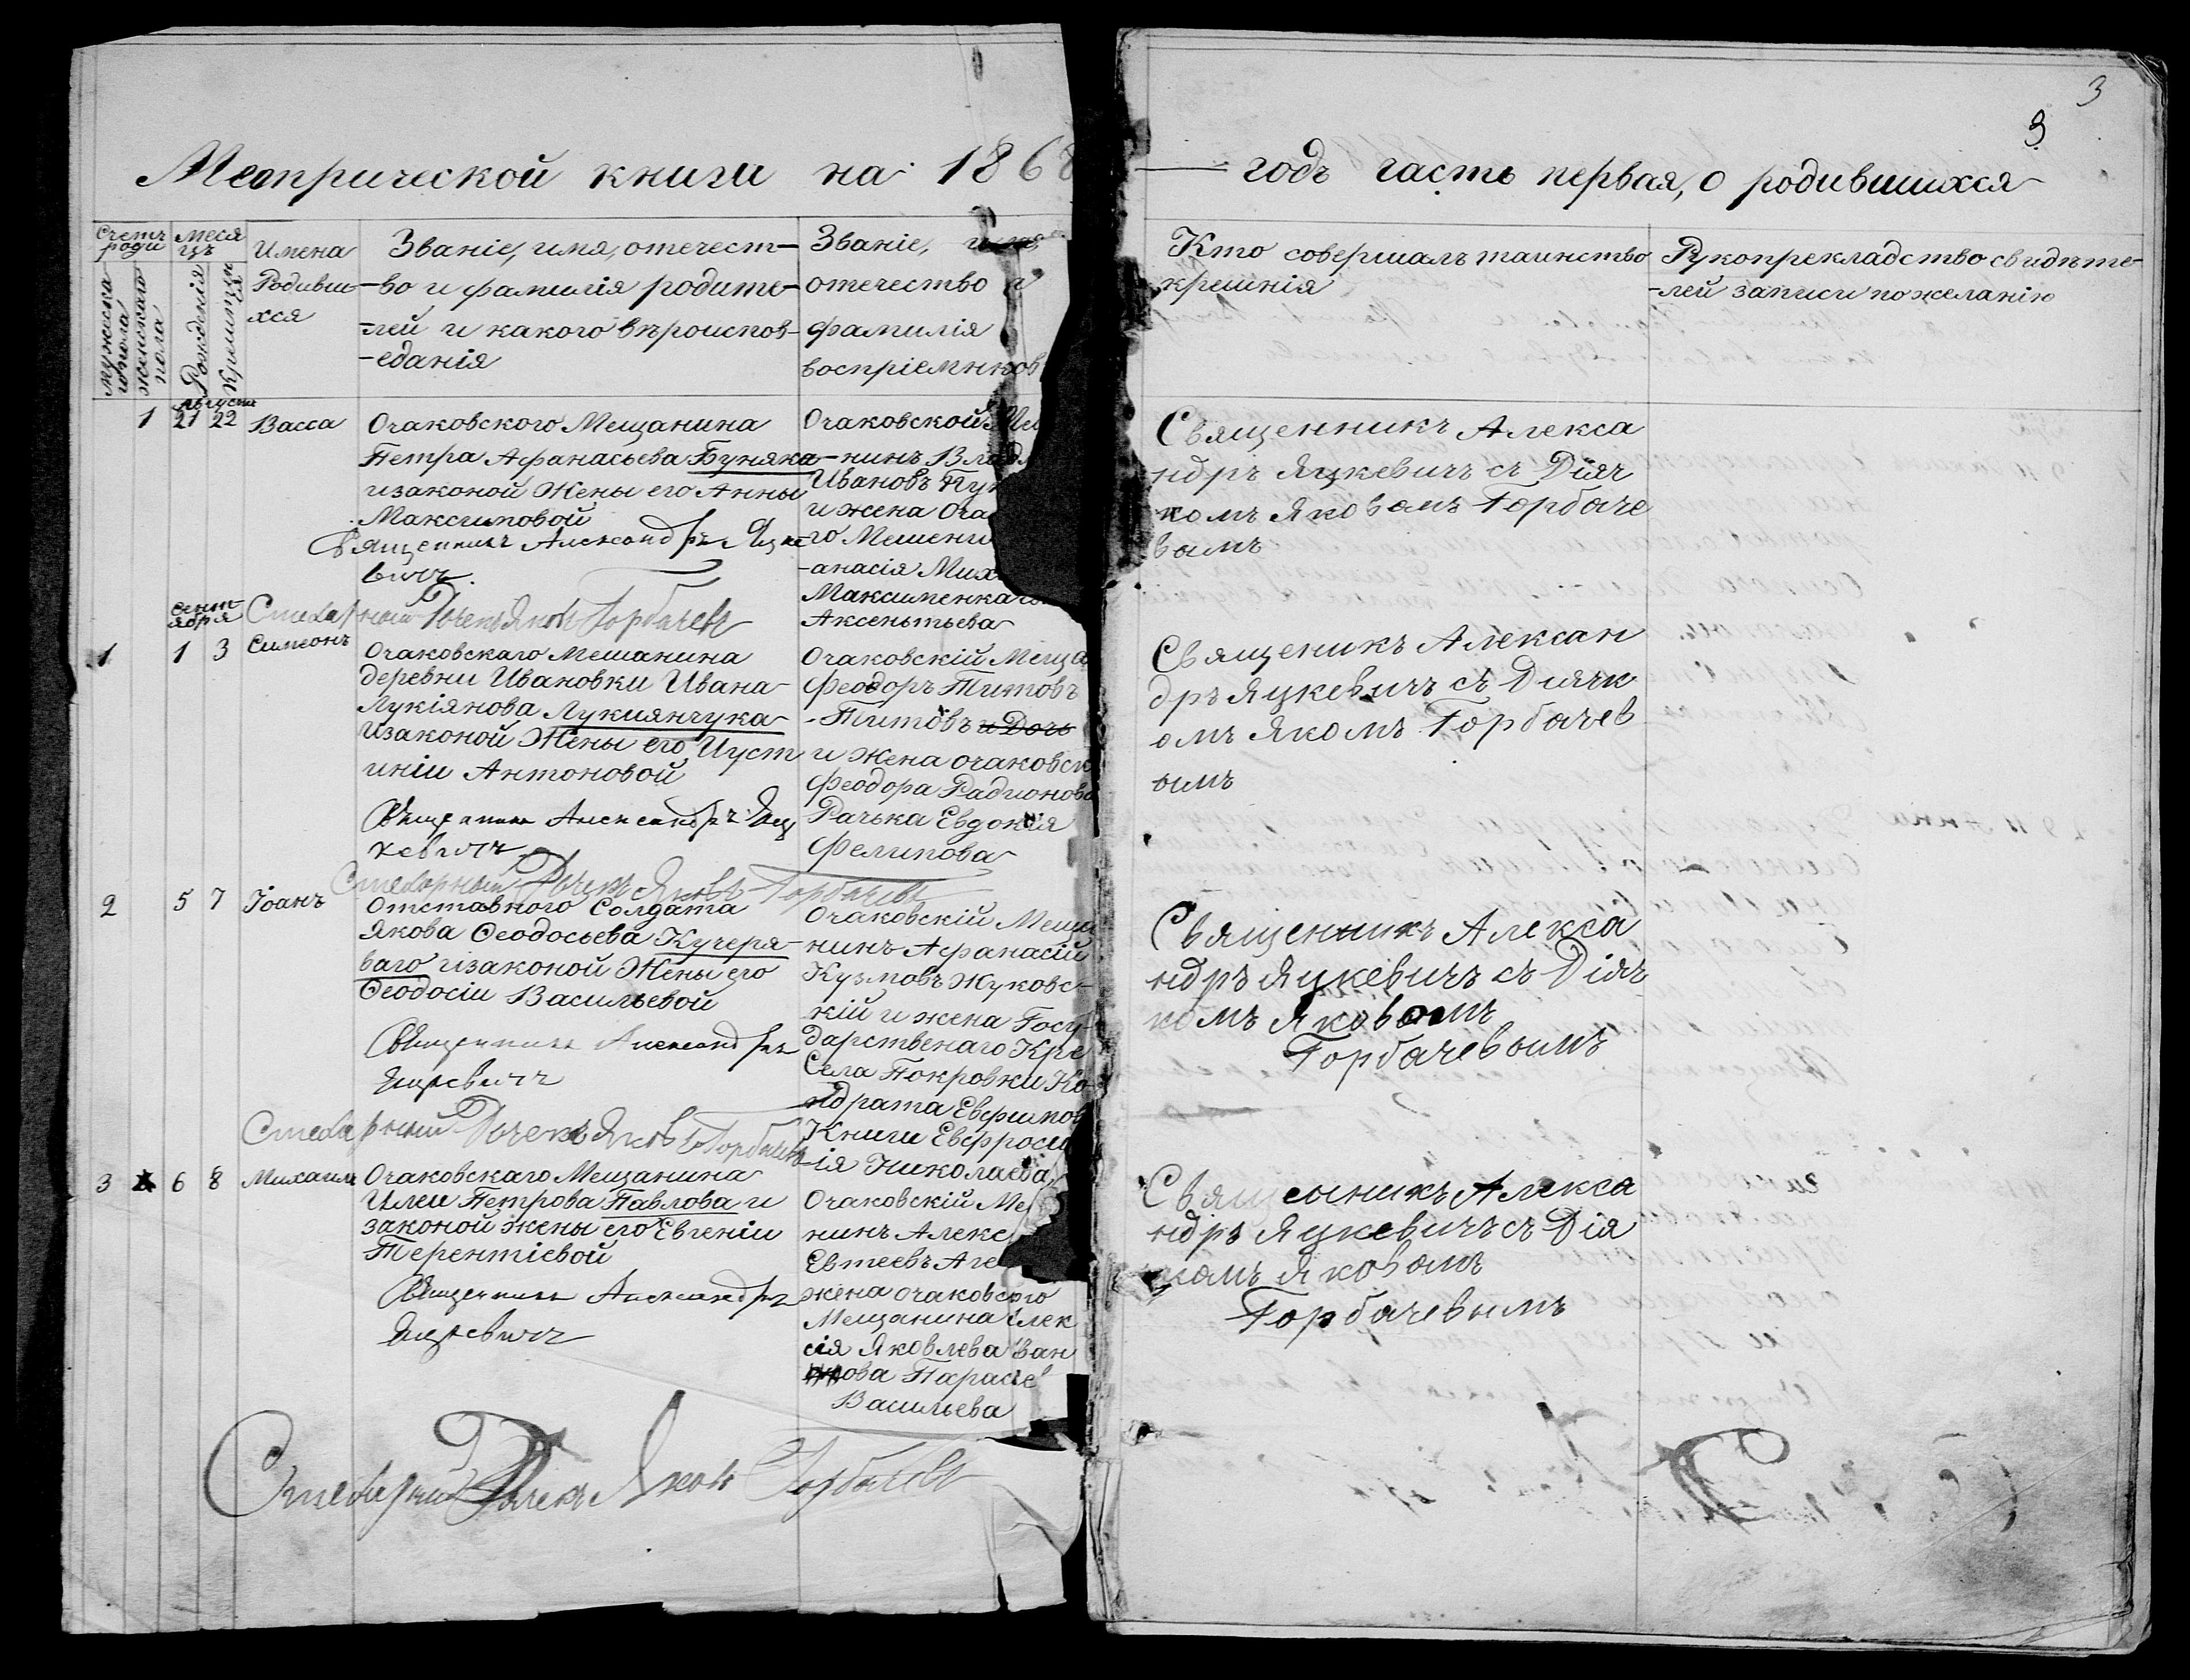 3
3
Метрической книги на 1868
годъ часть первая, о родившихся
Счетъ роди
Меся
цъ
мужеска
го пола
женскаго
пола
Рожденія
Крещенія
Имена
Родивш
хся
Званіе, имя, отечест-
-во и фамилія родите-
-лей и какого вѣроиспов-
-еданія
Званіе, имя
отечество и
фамилія
воспріемнков
Кто совершалъ таинство
крешнія
Рукопрекладство свидѣте-
-лей записи по желанію
Августа
1 21 22 Васса
Очаковского Мещанина
Петра Афанасьева Буняка
изаконой Жены его Анны
Максимовой
Священникъ Александръ Яцке
вичъ
Стехарный Дячекъ Яковъ Горбачевъ
Очаковской Ме
-нинъ Влад
Ивановъ Пу
и жена Оча
го Мешени
-анасія Мих
Максименка
Аксентьева
Священникъ Алекса
ндръ Яцкевичъ съ Діяч
комъ Яковомъ Горбаче
вымъ
Сент
ября
1 1 3 Симеонъ
Очаковскаго мешанина
деревни Ивановки Ивана
Лукіянова Лукиянчука
Изаконой Жены его Иуст
иніи Антоновой
Священникъ Александръ Яц
кевичъ
Стехарный Дячекъ Яковъ Горбачевъ
Очаковскій Меща
Феодоръ Титовъ
-Титовъ и Дочь
и жена очаковск
Феодора Радионова
Рачька Евдокія
Фелипова
Священикъ Алексан
дръ Яцкевичъ съ Диячк
омъ Якомъ Горбачев
ымъ
2 5 7 Іоанъ
Отставного Солдата
Якова Феодосьева Кучеря-
ваго изаконой Жены его
Феодосіи Васильевой
Священникъ Александръ
Яцкевичъ
Стехарный Дячекъ Яковъ Горбачевъ
Очаковскій Меща
нинъ Афанасій
Кузмовъ Жуковс-
кій и жена Госу-
дарственаго Кре
Села Покровки Ко-
ндрата Евфимов
Книги Евфроси
-ія Николаева,
Священникъ Алекса
ндръ Яцкевичъ съ Діяч
комъ Яковомъ
Горбачевымъ
3 6 8 Михаилъ
Очаковскаго Мещанина
Илии Петрова Павлова и
законой жены его Евгеніи
Терентіевой
Священникъ Александръ
Яцкевичъ
Очаковскій Ме
нинъ Алекс
Евтеевъ Аге
жена очаковского
Мещанина Алек
сія Яковлева Ван
нова Параске
Васильева
Священникъ Алекса
ндръ Яцкевичъ съ Дія
комъ Яковомъ
Горбачевымъ
Стехарный Дячекъ Яковъ Горбачевъ